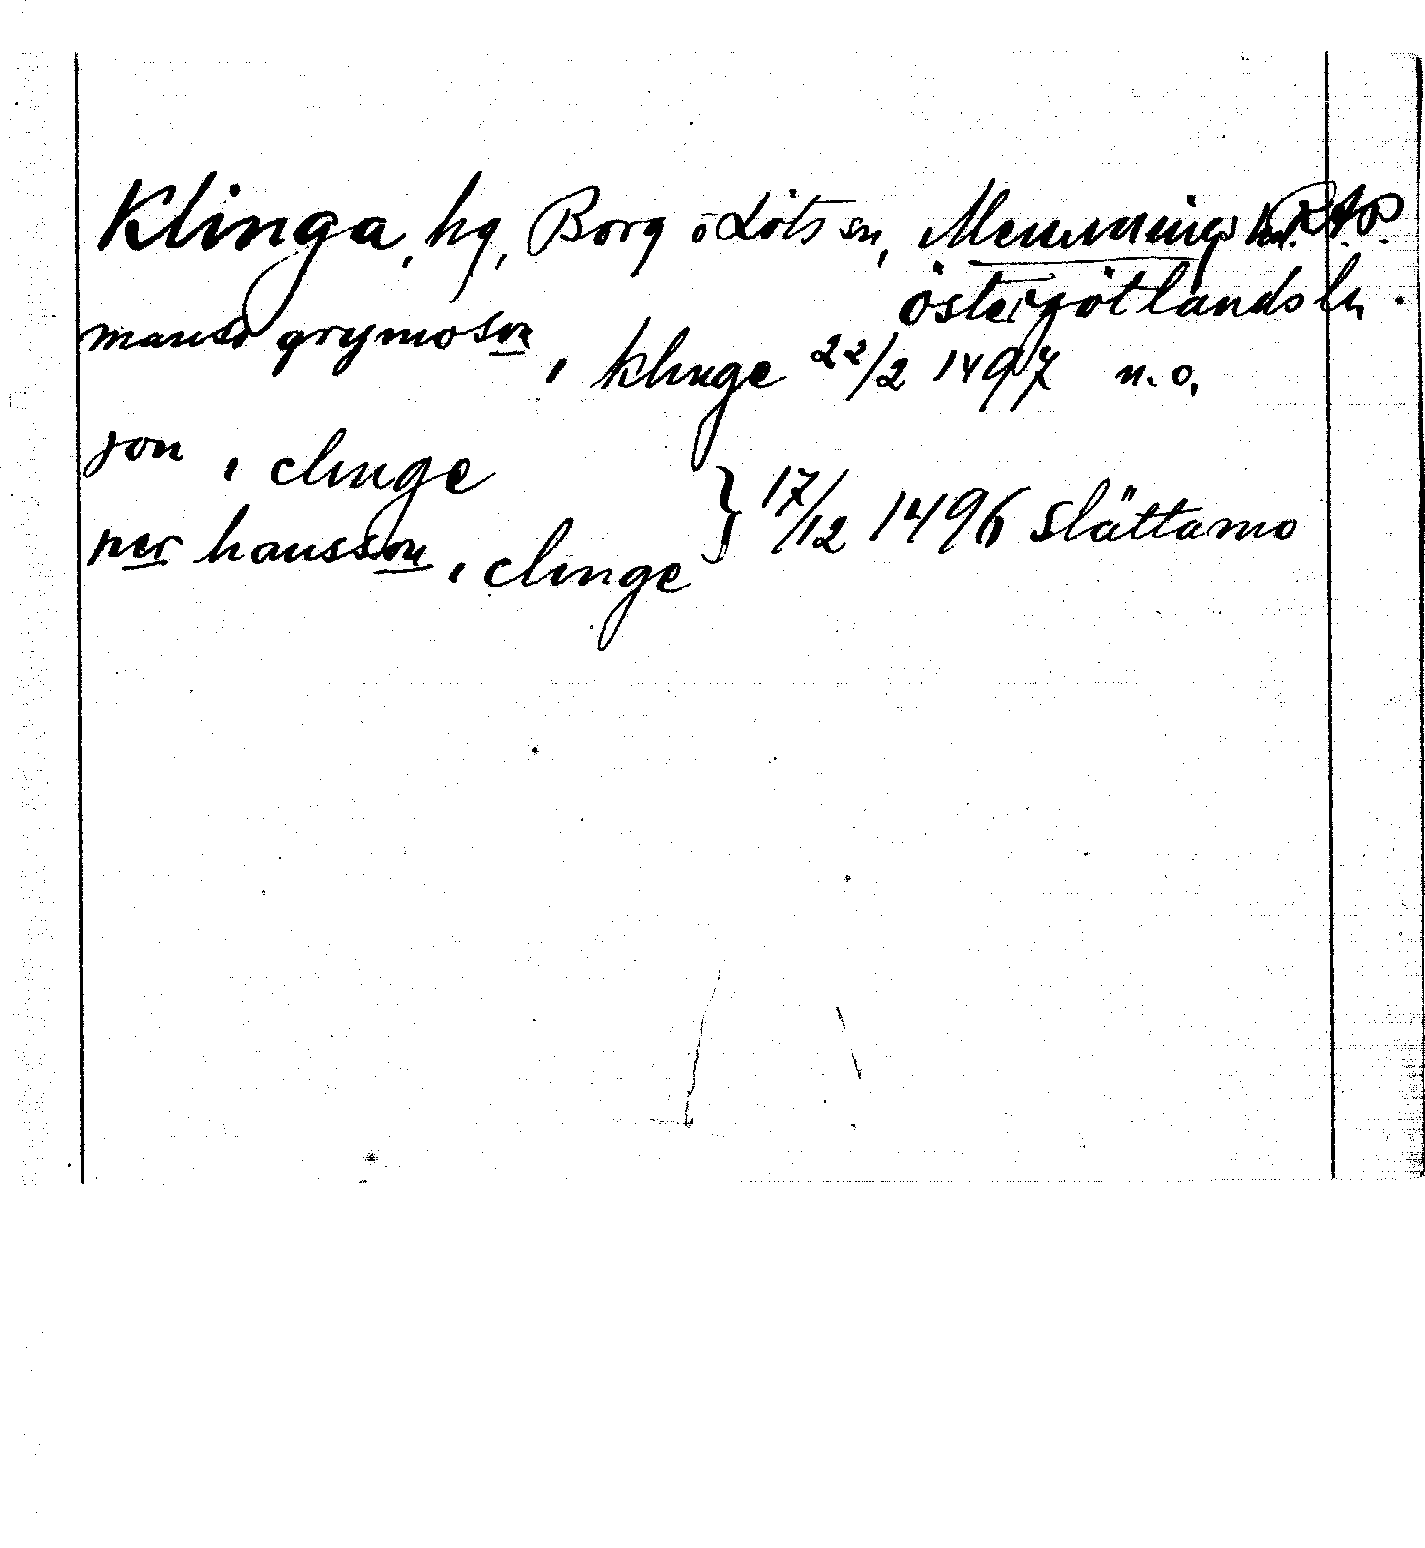 Klinga, hg, Borg o Löts sn, Memmings hd. RAP.
östergötlands ln.
mansd grymoson, i klinge 22/2 1497 n.o,
jon, i clinge
per hansson, i clinge } 17/12 1496 Slättamo